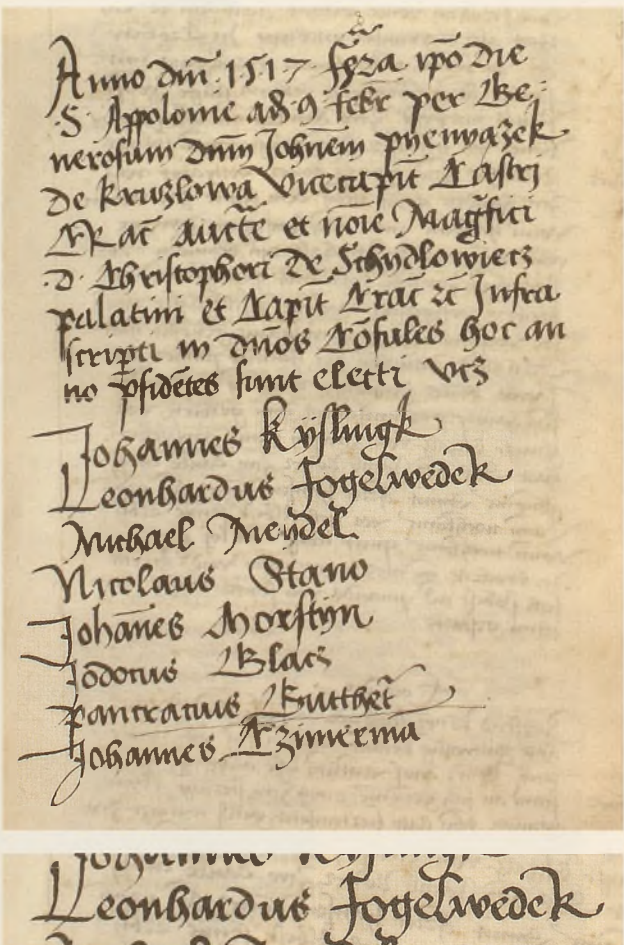 Anno dm̄ 1517 ipō die
S Appolonie ad 9 febr per Ge
nerosum dnm Johnēm pyenyązek
de kruzlowa vicecapit Castri
CRac auctē et noīe Magfici
D Christophori de Schydlowiecz
palatini et Capit Crac zc Infra
scripti in dnos Cōsules hoc an
no pſidētes sunt electi vcz
Johannes kyslingk
Leonhardus Fogelwedek
Michael Meydel
Nicolaus Stano
Johānes Morstyn
Jodocus Glacz
pancracius Gutthet̄
Johannes Czimermā
Leonhardus Fogelwedek